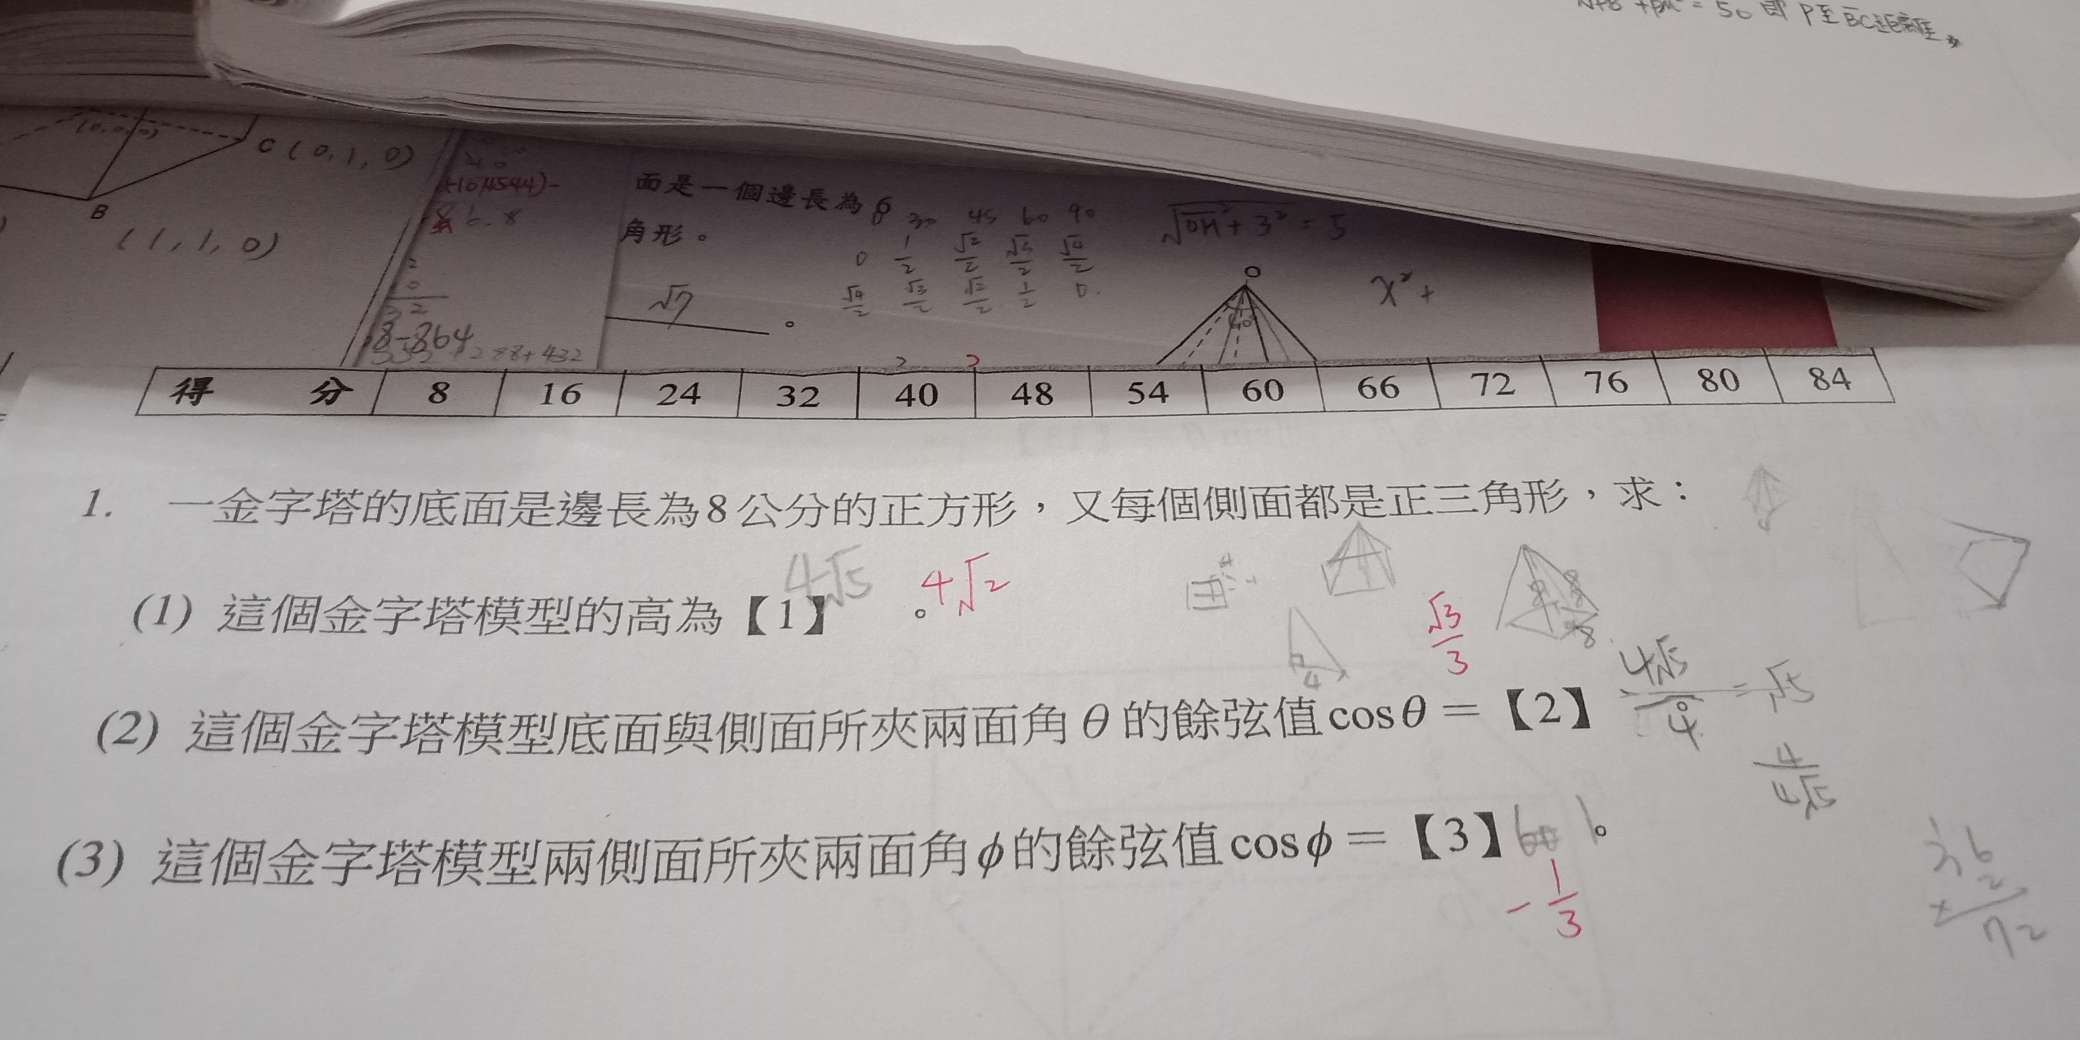 = 50 即 P至BC距離
(0,0,0)
C (0,1,0)
B
(1,1,0)
面是一個邊長為6
角形。
30 45 60 90
0 1/2 √2/2 √3/2 √4/2
√4/2 √3/2 √2/2 1/2 0
√7 。
√OH²+3² = 5
O
x² +
86.8
8-864
288+432
得 分 8 16 24 32 40 48 54 60 66 72 76 80 84
1. 一金字塔的底面是邊長為8公分的正方形，又每個側面都是正三角形，求：
(1) 這個金字塔模型的高為【1】 4√5 。 4√2
√3/3
(2) 這個金字塔模型底面與側面所夾兩面角θ的餘弦值cosθ＝【2】 。
4√5/4 = √5
4/4√5
(3) 這個金字塔模型兩側面所夾兩面角ϕ的餘弦值cosϕ＝【3】 。
-1/3
36
× 2
72